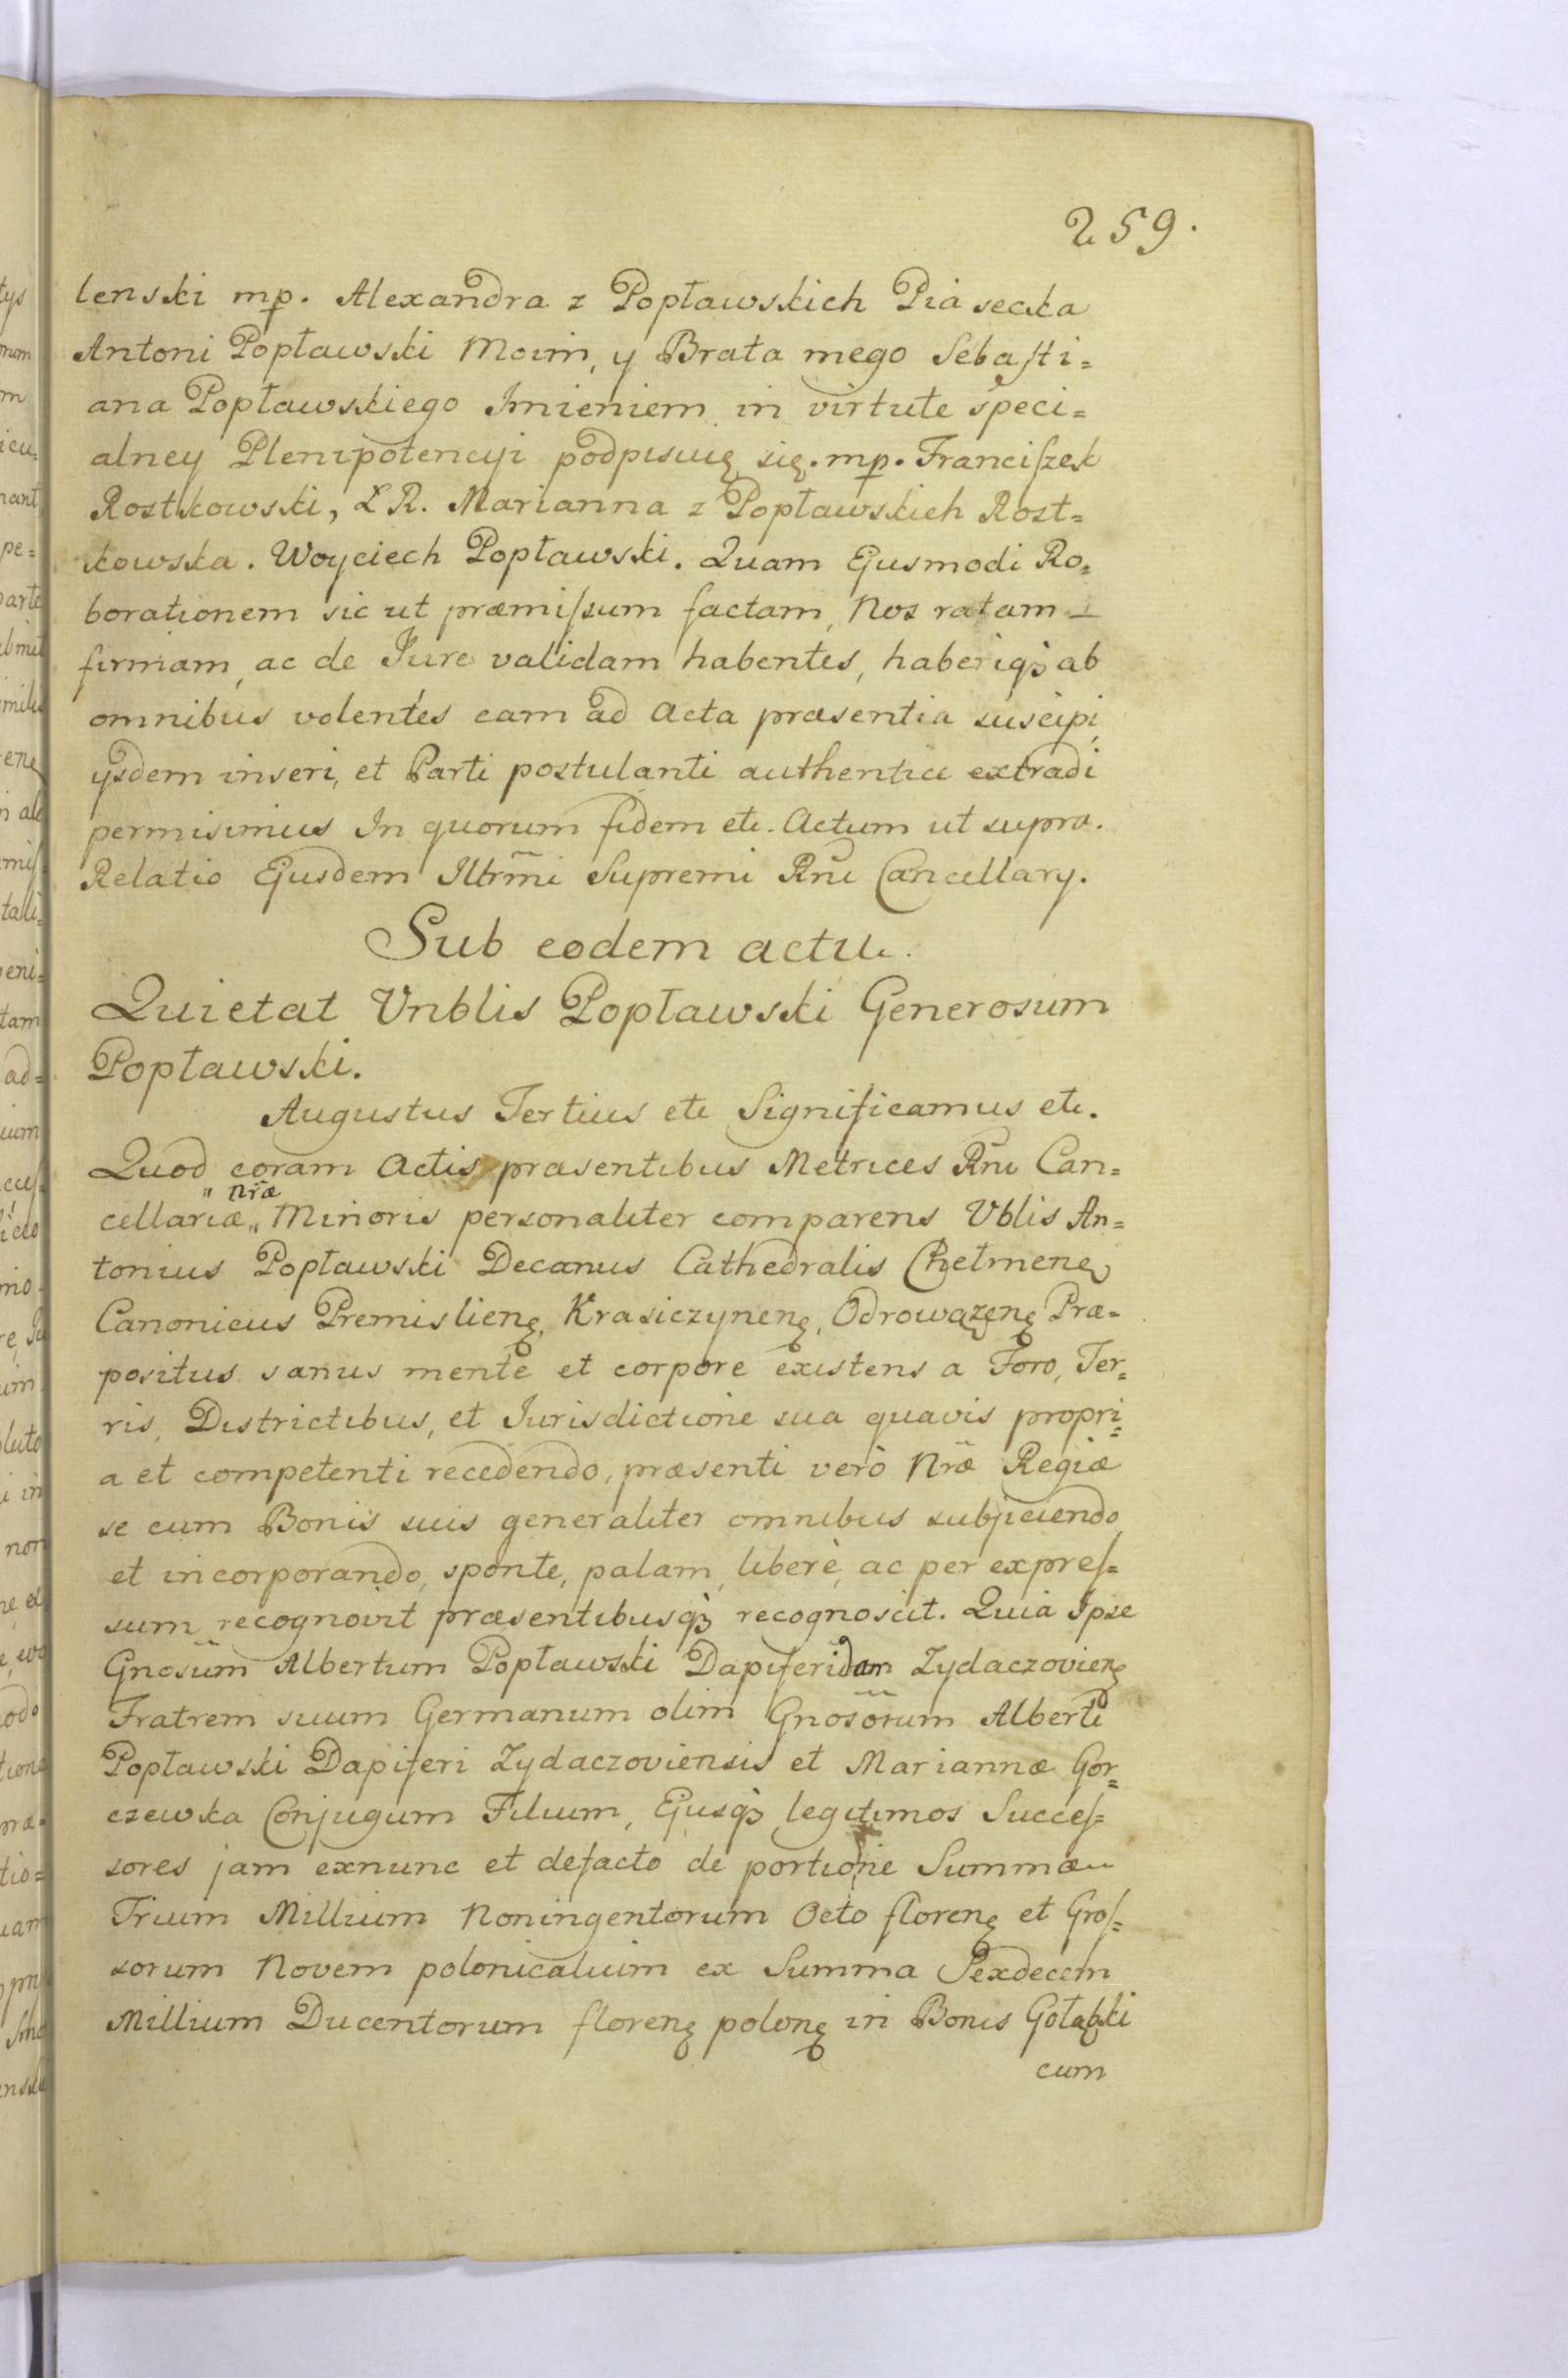 259.
lenski mp. Alexandra z Popławskich Piasecka
Antoni Popławski Moim, y Brata mego Sebasti=
ana Popławskiego Imieniem in virtute speci=
alney Plenipotencyi podpisuię się. mp. Franciszek
Rostkowski, S. R. Marianna z Popławskich Rost=
kowska. Woyciech Popławski. Quam Ejusmodi Ro=
borationem sic ut præmissum factam, Nos ratam
firmam, ac de Jure validam habentes, haberiqȝ ab
omnibus volentes eam ad Acta præsentia suscipi,
ysdem inseri, et Parti postulanti authentice extradi
permisimus In quorum fidem etc. Actum ut supra.
Relatio Ejusdem Illrm̃i Supremi Rñi Cancellary.
Sub eodem actu.
Quietat Vnblis Popławski Generosum
Popławski.
Augustus Tertius etc Significamus etc.
Quod coram Actis præsentibus Metrices Rñi Can=
cellariæ „ nr̃æ „ Minoris personaliter comparens Vblis An=
tonius Popławski Decanus Cathedralis Chełmenę
Canonicus Premislienę, Krasiczynenę, Odrowązenę Præ=
positus sanus mente et corpore existens a Foro, Ter=
ris, Districtibus, et Jurisdictione sua quavis propri=
a et competenti recedendo, præsenti verò Nr̃æ Regiæ
se cum Bonis suis generaliter omnibus subjiciendo
et incorporando, sponte, palam, liberè, ac per expres=
sum recognovit præsentibusqȝ recognoscit. Quia Ipse
Gnosum̃ Albertum Popławski Dapiferidam Zydaczovienę
Fratrem suum Germanum olim Gnosõrum Alberti
Popławski Dapiferi Zydaczoviensis et Mariannæ Gor=
czewska Conjugum Filium, Ejusqȝ legitimos Succes=
sores jam exnunc et defacto de portione Summæ
Trium Millium Noningentorum Octo florenę et Gros=
sorum Novem polonicalium ex Summa Sexdecem
Millium Ducentorum florenę polonę in Bonis Gołąbki
cum